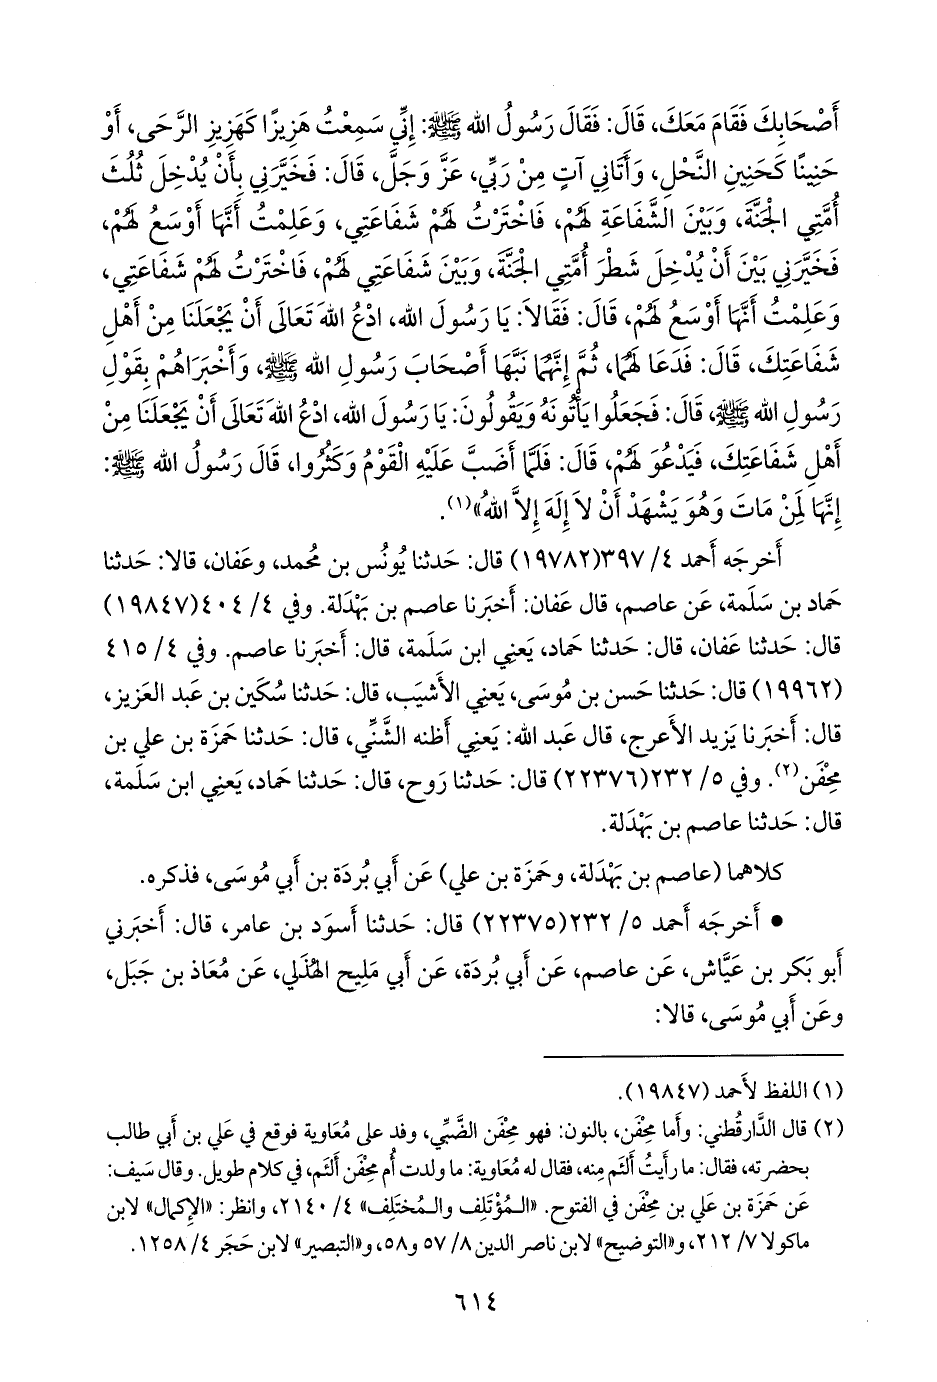 أَصْحَابِكَ فَقَامَ مَعَكَ، قَالَ: فَقَالَ رَسُولُ الله ﷺ: إِنِّي سَمِعْتُ هَزِيزًا كَهَزِيزِ الرَّحَى، أَوْ
حَنِينًا كَحَنِينِ النَّحْلِ، وَأَتَانِي آتٍ مِنْ رَبِّي، عَزَّ وَجَلَّ، قَالَ: فَخَيَّرَنِي بِأَنْ يُدْخِلَ ثُلُثَ
أُمَّتِي الْجَنَّةَ، وَبَيْنَ الشَّفَاعَةِ لَهُمْ، فَاخْتَرْتُ لَهُمْ شَفَاعَتِي، وَعَلِمْتُ أَنَّهَا أَوْسَعُ لَهُمْ،
فَخَيَّرَنِي بَيْنَ أَنْ يُدْخِلَ شَطْرَ أُمَّتِي الْجَنَّةَ، وَبَيْنَ شَفَاعَتِي لَهُمْ، فَاخْتَرْتُ لَهُمْ شَفَاعَتِي،
وَعَلِمْتُ أَنَّهَا أَوْسَعُ لَهُمْ، قَالَ: فَقَالاَ: يَا رَسُولَ الله، ادْعُ اللهَ تَعَالَى أَنْ يَجْعَلَنَا مِنْ أَهْلِ
شَفَاعَتِكَ، قَالَ: فَدَعَا لَهُمَا، ثُمَّ إِنَّهُمَا نَبَّهَا أَصْحَابَ رَسُولِ الله ﷺ، وَأَخْبَرَاهُمْ بِقَوْلِ
رَسُولِ الله ﷺ، قَالَ: فَجَعَلُوا يَأْتُونَهُ وَيَقُولُونَ: يَا رَسُولَ الله، ادْعُ اللهَ تَعَالَى أَنْ يَجْعَلَنَا مِنْ
أَهْلِ شَفَاعَتِكَ، فَيَدْعُوَ لَهُمْ، قَالَ: فَلَمَّا أَضَبَّ عَلَيْهِ الْقَوْمُ وَكَثُرُوا، قَالَ رَسُولُ الله ﷺ:
إِنَّهَا لِمَنْ مَاتَ وَهُوَ يَشْهَدُ أَنْ لاَ إِلَهَ إِلاَّ اللهُ»(١).
أَخرجَه أَحمد ٤/ ٣٩٧(١٩٧٨٢) قال: حَدثنا يُونُس بن مُحمد، وعَفان، قالا: حَدثنا
حَماد بن سَلَمة، عَن عاصم، قال عَفان: أَخبَرنا عاصم بن بَهْدَلة. وفي ٤/ ٤٠٤(١٩٨٤٧)
قال: حَدثنا عَفان، قال: حَدثنا حَماد، يَعنِي ابن سَلَمة، قال: أَخبَرنا عاصم. وفي ٤/ ٤١٥
(١٩٩٦٢) قال: حَدثنا حَسن بن مُوسَى، يَعنِي الأَشيَب، قال: حَدثنا سُكَين بن عَبد العَزيز،
قال: أَخبَرنا يَزيد الأَعرج، قال عَبد الله: يَعني أَظنه الشَّنِّي، قال: حَدثنا حَمزَة بن علي بن
مِحْفَن(٢). وفي ٥/ ٢٣٢(٢٢٣٧٦) قال: حَدثنا رَوح، قال: حَدثنا حَماد، يَعنِي ابن سَلَمة،
قال: حَدثنا عاصم بن بَهْدَلة.
كلاهما (عاصم بن بَهْدَلة، وحَمزَة بن علي) عَن أَبي بُردَة بن أَبي مُوسَى، فذكره.
• أَخرجَه أَحمد ٥/ ٢٣٢(٢٢٣٧٥) قال: حَدثنا أَسوَد بن عامر، قال: أَخبَرني
أَبو بَكر بن عَيَّاش، عَن عاصم، عَن أَبي بُردَة، عَن أَبي مَليح الهُذَلي، عَن مُعَاذ بن جَبَل،
وعَن أَبي مُوسَى، قالا:
(١) اللفظ لأَحمد (١٩٨٤٧).
(٢) قال الدَّارقُطني: وأَما مِحْفَن، بالنون: فهو مِحْفَن الضَّبِّي، وفد على مُعَاوية فوقع في علي بن أَبي طالب
بحضرته، فقال: ما رأَيتُ أَلْئَم مِنه، فقال له مُعَاوية: ما ولدت أُم مِحْفَن أَلْئَم، في كلام طويل. وقال سَيف:
عَن حَمزَة بن علي بن مِحْفَن في الفتوح. «الـمُؤتَلِف والـمُختَلِف» ٤/ ٢١٤٠، وانظر: «الإِكمال» لابن
ماكولا ٧/ ٢١٢، و«التوضيح» لابن ناصر الدين ٨/ ٥٧ و٥٨، و«التبصير» لابن حَجَر ٤/ ١٢٥٨.
٦١٤